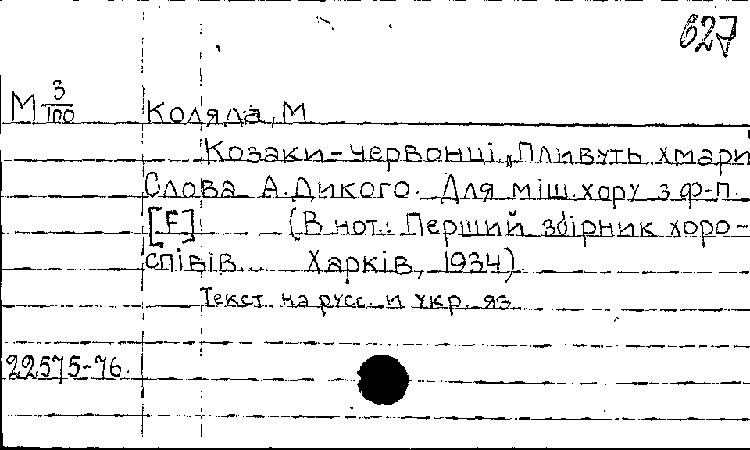 627
М 3/100 Коляда, М
Козаки-червонці „Пливуть хмари
Слова А. Дикого. Для міш. хору з ф-п.
[F] (В нот.: Перший збірник хоро-
співів... Харків, 1934)
Текст на русс. и укр. яз.
22575-76.